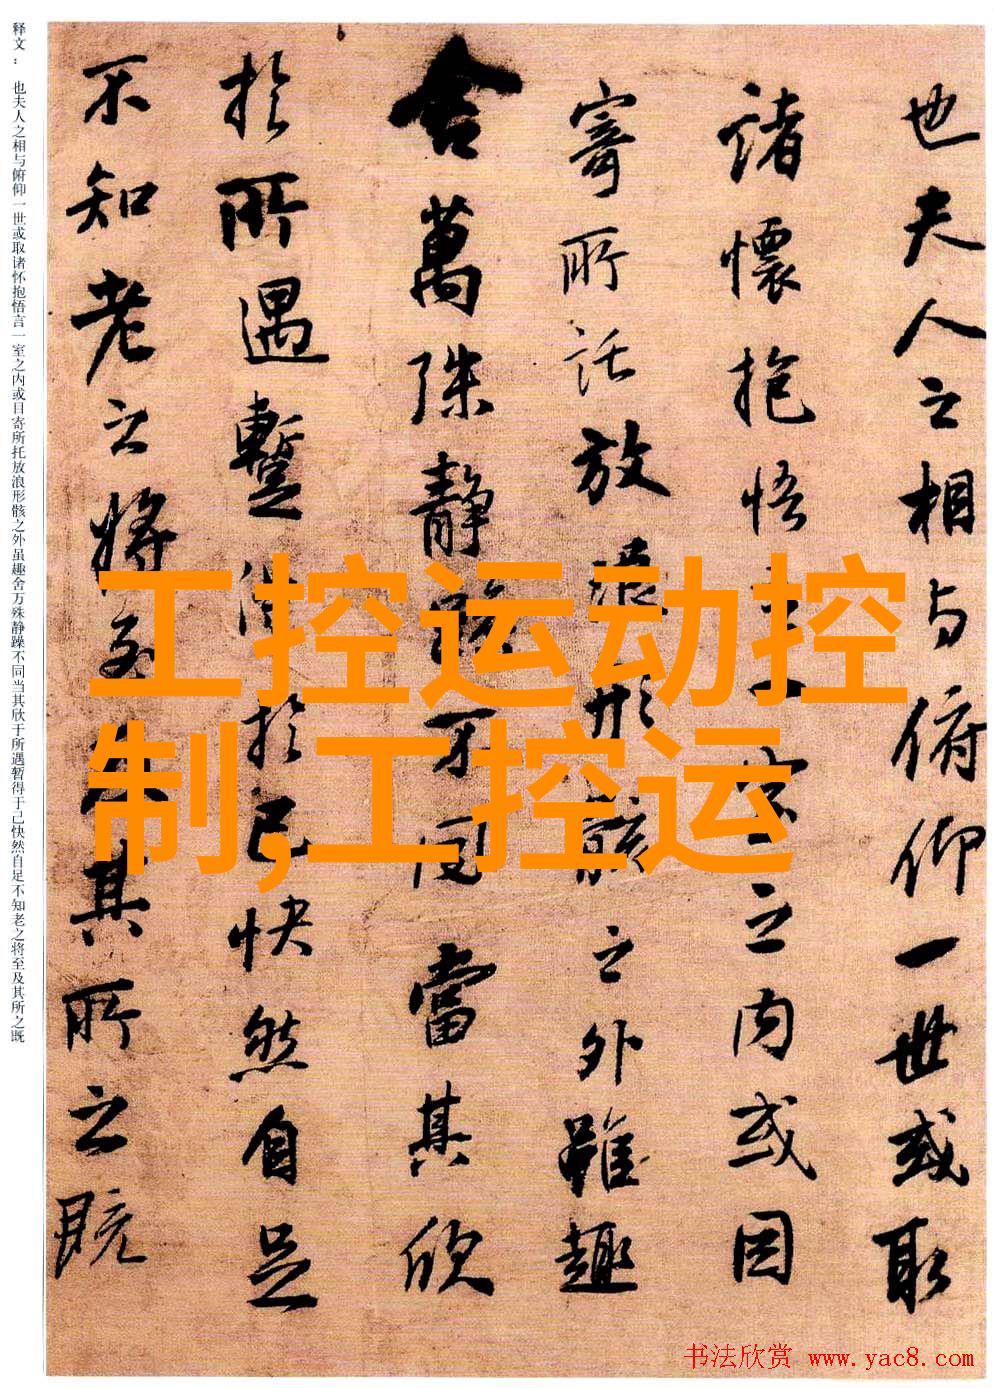 也夫人之相与俯仰一世或取
諸懷抱悟言一室之内或因
寄所託放浪形骸之外雖趣
舍萬殊静躁不同當其欣
於所遇蹔得於己快然自足
不知老之將至及其所之既
释文： 也夫人之相与俯仰一世或取诸怀抱悟言一室之内或目寄所托放浪形骸之外虽趣舍万殊静躁不同当其欣于所遇暂得于己快然自足不知老之将至及其所之既
工控运动控
制,工控运
书法欣赏 www.yac8.com